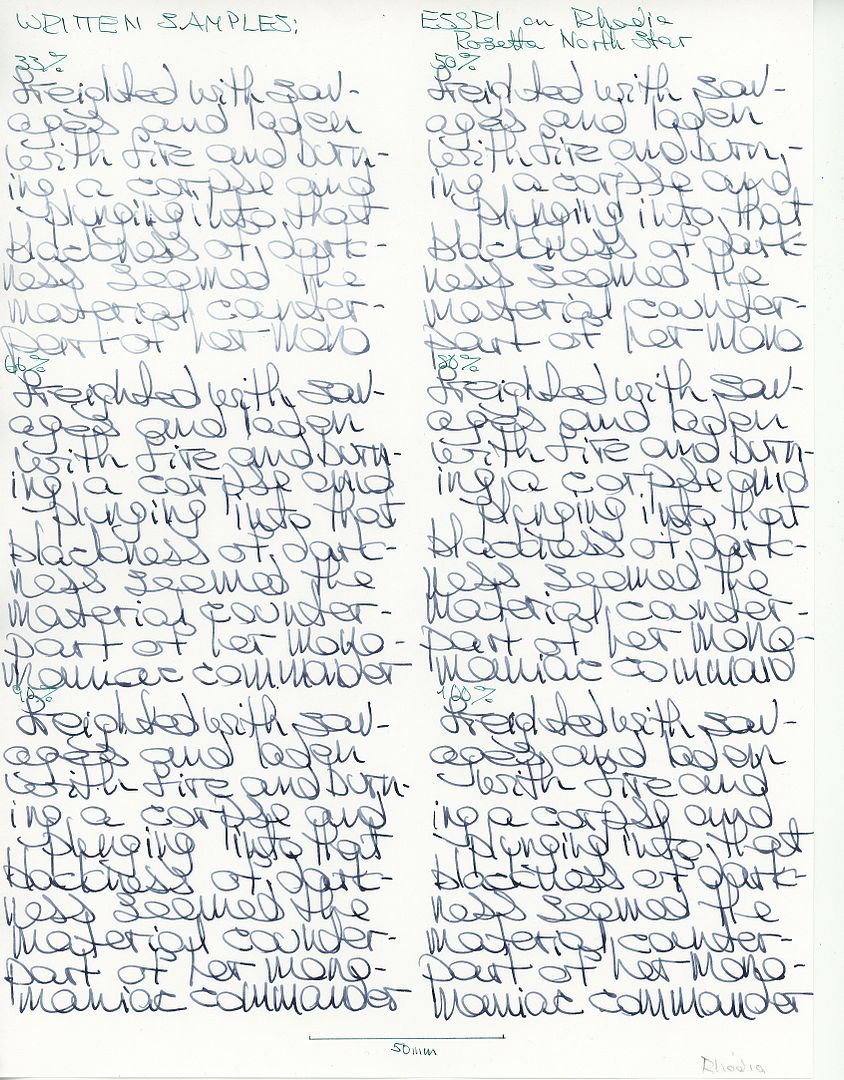 WRITTEN SAMPLES:
ESSRI on Rhodia
Rosetta North Star
33%
freighted with sav-
ages and laden
with fire and burn-
ing a corpse and
plunging into that
blackness of dark-
ness seemed the
material counter-
part of her mono
50%
freighted with sav-
ages and laden
with fire and burn-
ing a corpse and
plunging into that
blackness of dark-
ness seemed the
material counter-
part of her mono
66%
freighted with sav-
ages and laden
with fire and burn-
ing a corpse and
plunging into that
blackness of dark-
ness seemed the
material counter-
part of her mono-
maniac commander
80%
freighted with sav-
ages and laden
with fire and burn-
ing a corpse and
plunging into that
blackness of dark-
ness seemed the
material counter-
part of her mono-
maniac command
90%
freighted with sav-
ages and laden
with fire and burn-
ing a corpse and
plunging into that
blackness of dark-
ness seemed the
material counter-
part of her mono-
maniac commander
100%
freighted with sav-
ages and laden
with fire and
ing a corpse and
plunging into that
blackness of dark-
ness seemed the
material counter-
part of her mono-
maniac commander
50mm
Rhodia